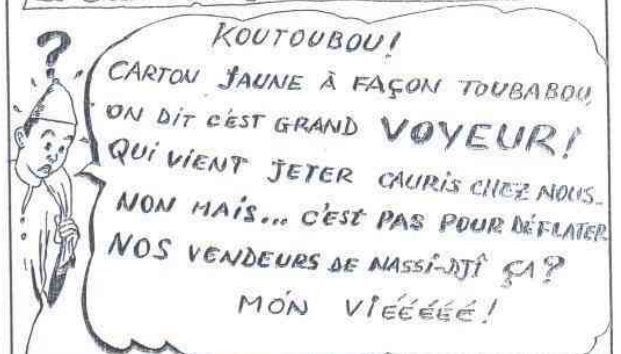 ?
KOUTOUBOU!
CARTON JAUNE À FAÇON TOUBABOU,
ON DIT C'EST GRAND VOYEUR!
QUI VIENT JETER CAURIS CHEZ NOUS_
NON MAIS... C'EST PAS POUR DÉFLATER
NOS VENDEURS DE NASSI-DJÎ ÇA?
MON VIÉÉÉÉÉ!